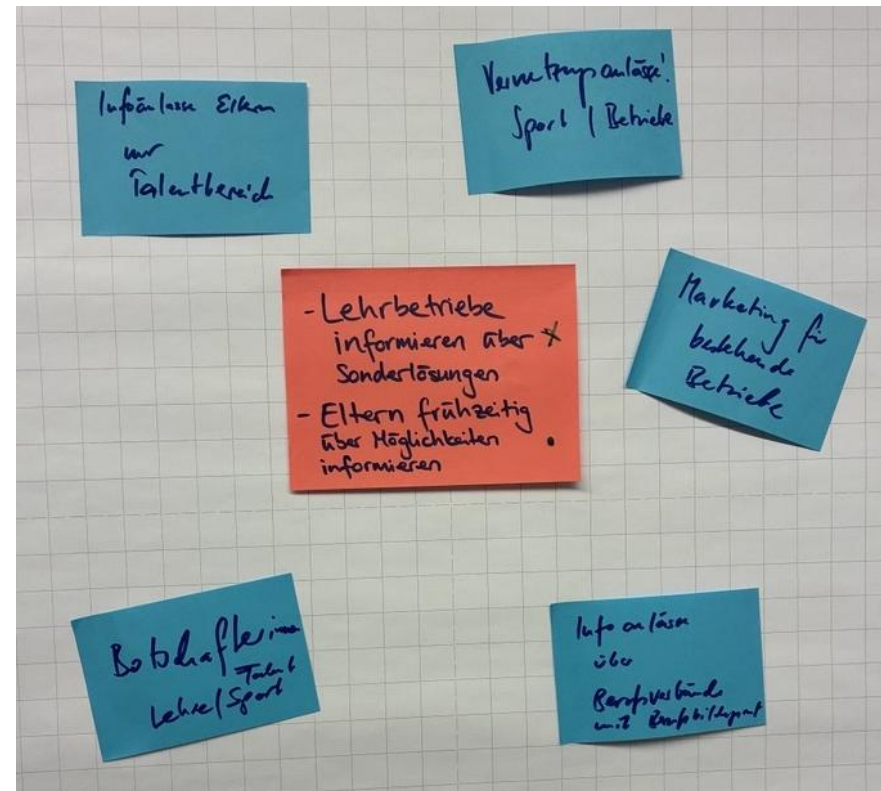 Infoanlässe Eltern
nur
Talentbereich
Vernetzungsanlässe!
Sport / Betriebe
- Lehrbetriebe
informieren über X
Sonderlösungen
- Eltern frühzeitig
über Möglichkeiten
informieren
Marketing für
bestehende
Betriebe
Botschafterinnen
Talent
Lehre/Sport
Infoanlässe
über
Berufsverbände
mit Berufsbildungsamt